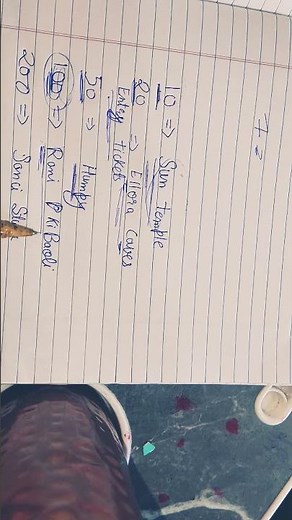 10 ⇒ Sun temple
20 ⇒ Ellora Caves
Entry tickets
50 ⇒ Humpy
100 ⇒ Rani Ki Baoli
200 ⇒ Sanci